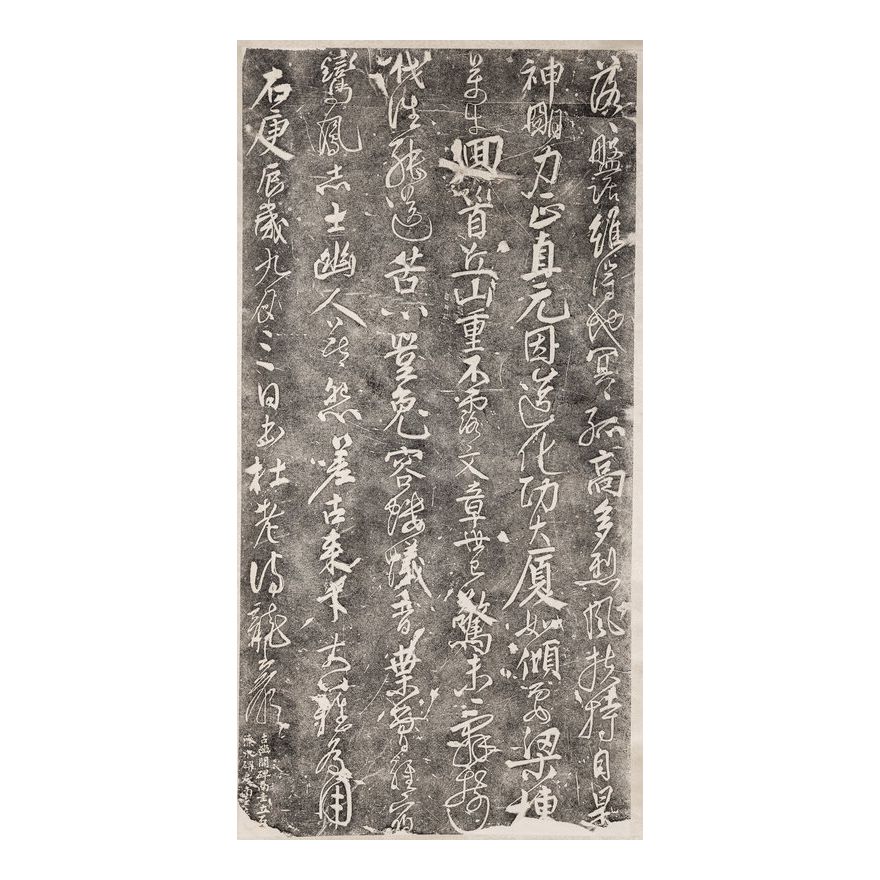 落〻盤踞雖得地冥〻孤高多烈風扶持自是
神明力正直元因造化功大廈如傾要梁棟
萬牛迴首丘山重不露文章世已驚未辭剪
伐誰能送苦心豈免容螻蟻香葉曾經宿
鸞鳳志士幽人莫怨嗟古來材大難為用
右庚辰歲九月三日書杜老詩龍巖